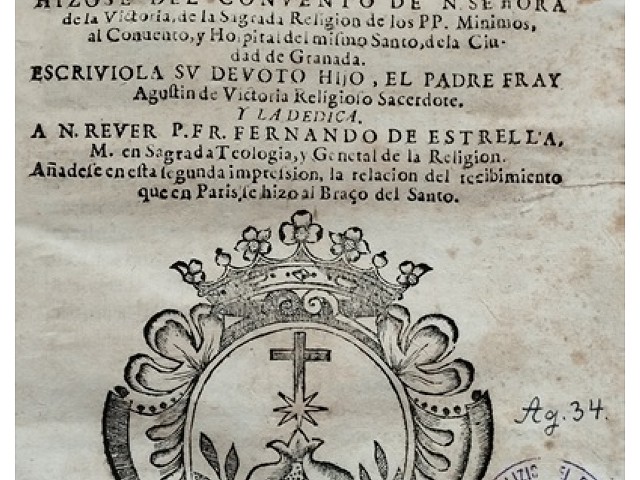 HIZOSE DEL CONVENTO DE N. SEÑORA
de la Victoria, de la Sagrada Religion de los PP. Minimos,
al Conuento, y Hospital del mismo Santo, de la Ciu-
dad de Granada.
ESCRIVIOLA SV DEVOTO HIJO, EL PADRE FRAY
Agustin de Victoria Religioso Sacerdote.
Y LA DEDICA.
A N. REVER P. FR. FERNANDO DE ESTRELLA,
M. en Sagrada Teologia, y General de la Religion.
Añadese en esta segunda impression, la relacion del recibimiento
que en Paris, se hizo al Braço del Santo.
Ag. 34.